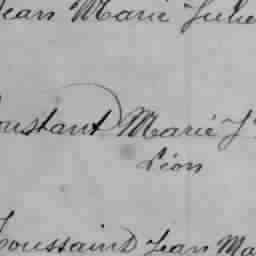 Jean Marie Julie
Constant Marie J
Léon
Toussaint Jean Ma